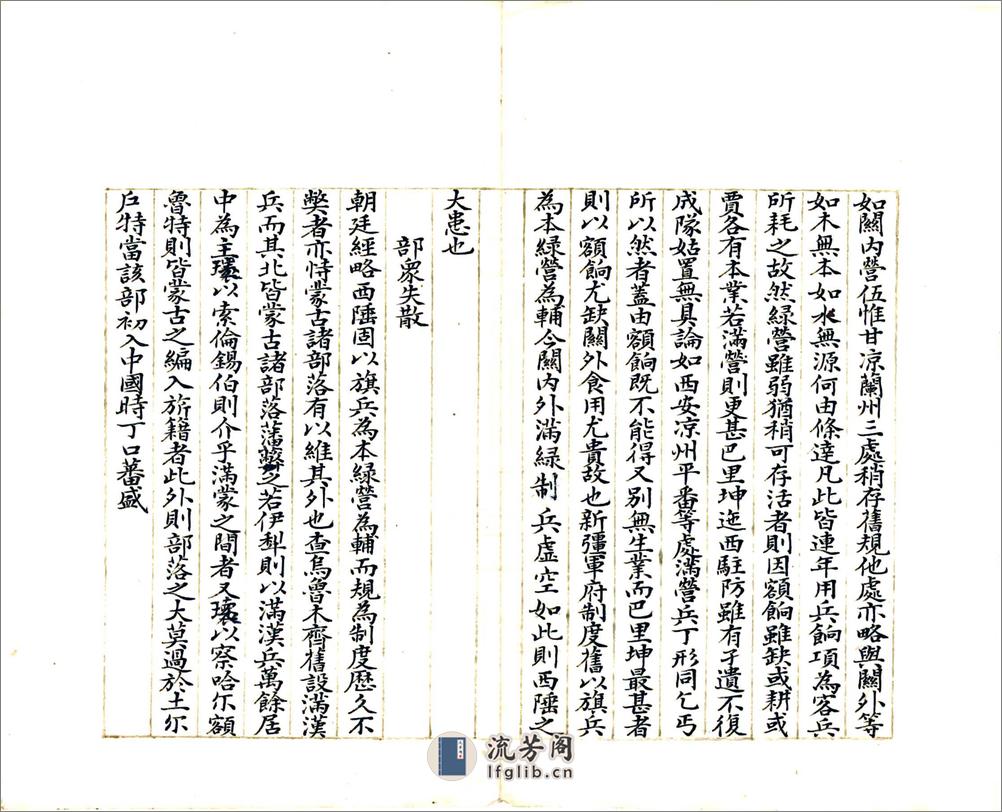 如關內營伍惟甘涼蘭州三處稍存舊規他處亦略與關外等
如木無本如水無源何由條達凡此皆連年用兵餉項為客兵
所耗之故然綠營雖弱猶稍可存活者則因額餉雖缺或耕或
賈各有本業若滿營則更甚巴里坤迤西駐防雖有孑遺不復
成隊姑置無具論如西安涼州平番等處滿營兵丁形同乞丐
所以然者蓋由額餉既不能得又別無生業而巴里坤最甚者
則以額餉尤缺關外食用尤貴故也新疆軍府制度舊以旗兵
為本綠營為輔今關內外滿綠制兵虛空如此則西陲之
大患也
部眾失散
朝廷經略西陲固以旗兵為本綠營為輔而規為制度歷久不
獘者亦恃蒙古諸部落有以維其外也查烏魯木齊舊設滿漢
兵而其北皆蒙古諸部落藩蔽之若伊犁則以滿漢兵萬餘居
中為主環以索倫錫伯則介乎滿蒙之間者又環以察哈尔額
魯特則皆蒙古之編入旂籍者此外則部落之大莫過於土尔
戶特當該部初入中國時丁口蕃盛
流芳阁
lfglib.cn